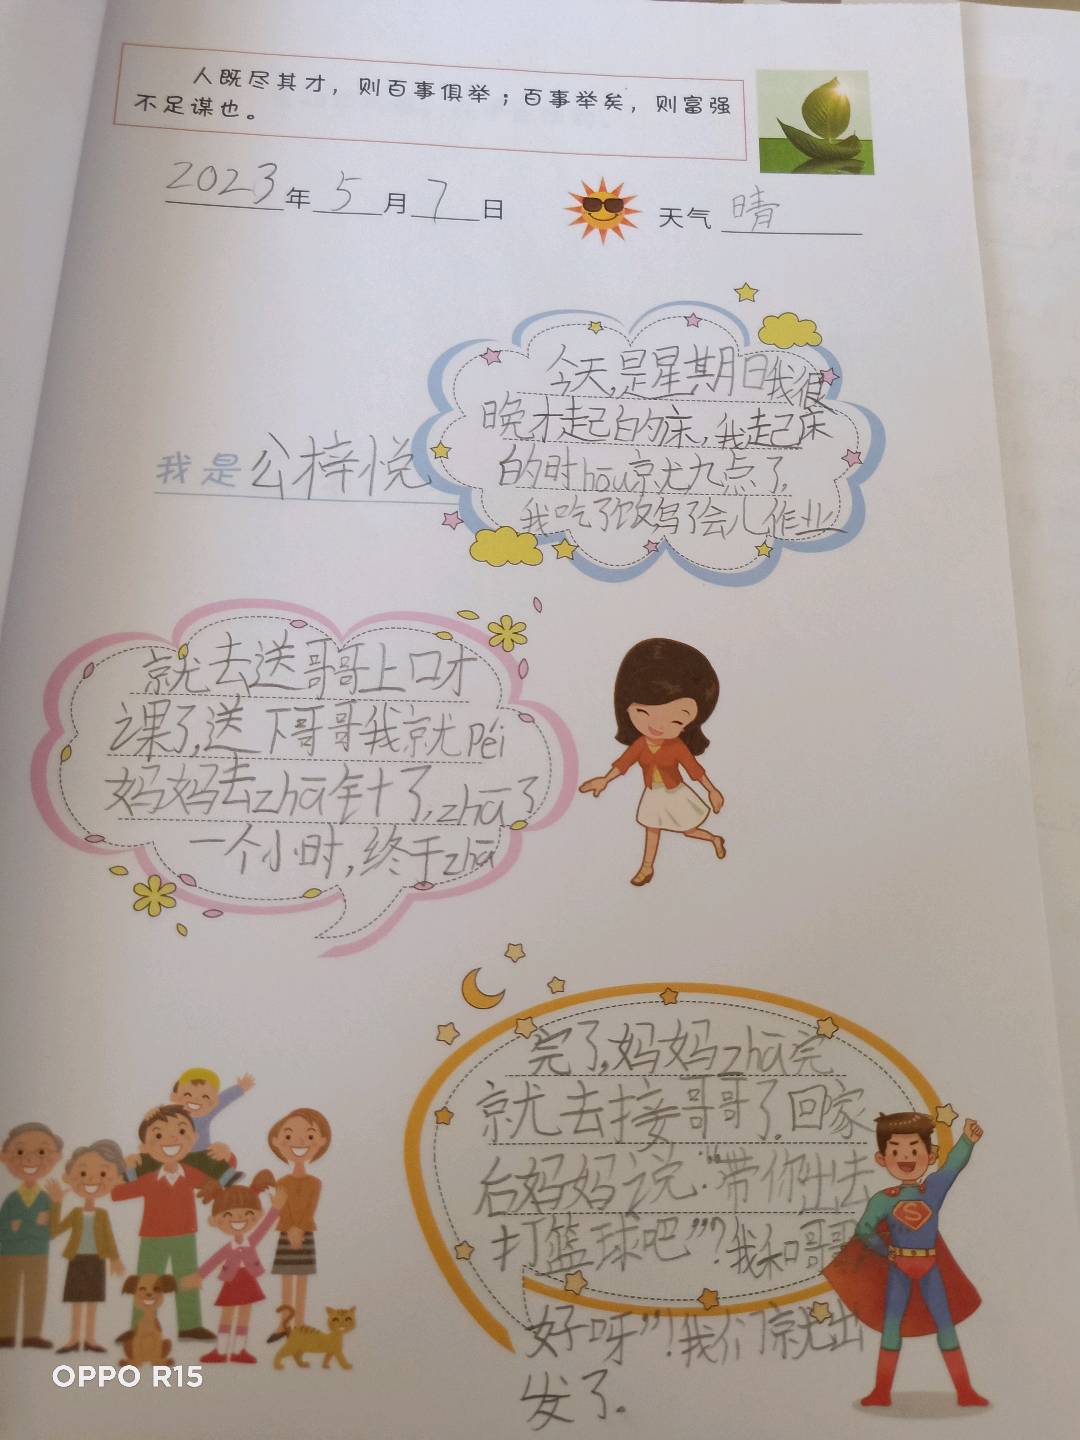 人既尽其才，则百事俱举；百事举矣，则富强
不足谋也。
2023年5月7日 天气 晴
今天,是星期日我很
晚才起的床,我起床
的时hou就九点了,
我吃了饭写了会儿作业
我是公梓悦
就去送哥哥上口才
课了,送下哥哥我就Péi
妈妈去zhā针了,zhā了
一个小时,终于zhā
完了,妈妈zhā完
就去接哥哥了.回家
后妈妈说:“带你出去
打篮球吧”?我和哥哥
好呀”!我们就出
发了.
S
OPPO R15